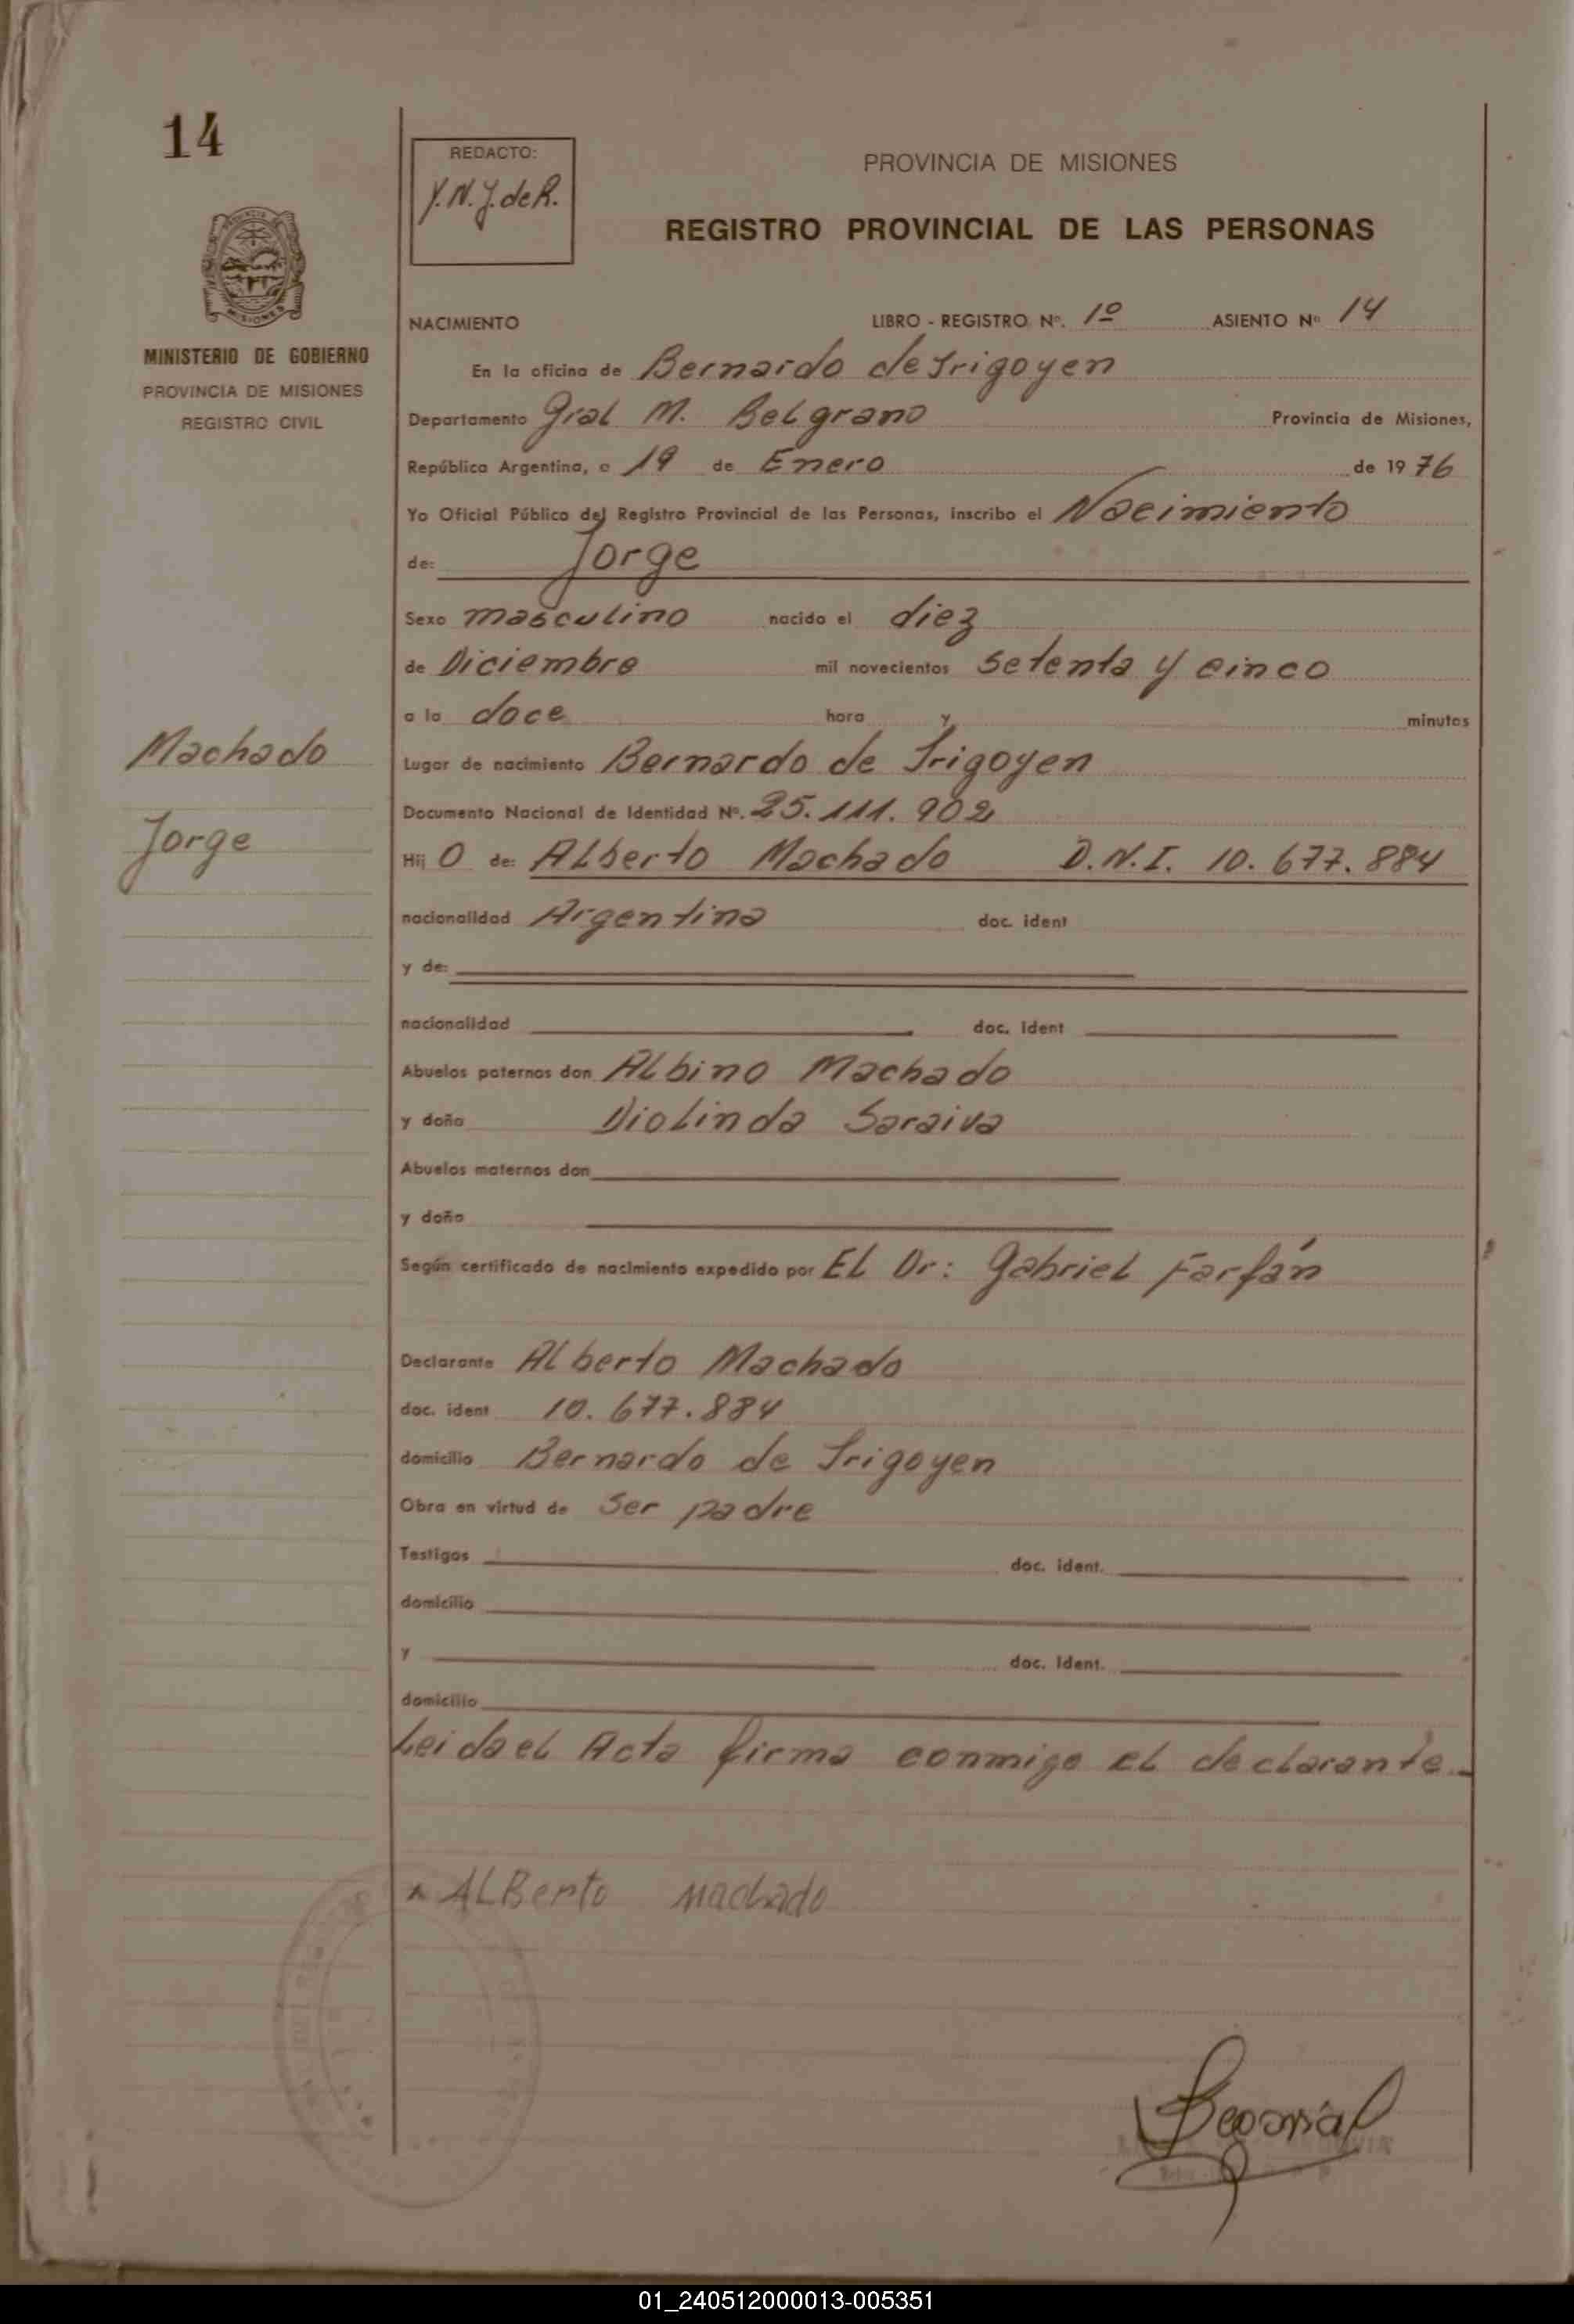 14
REDACTO:
Y.N.J. de R.
PROVINCIA DE MISIONES
REGISTRO PROVINCIAL DE LAS PERSONAS
MISIONES
MINISTERIO DE GOBIERNO
PROVINCIA DE MISIONES
REGISTRO CIVIL
NACIMIENTO LIBRO - REGISTRO Nº. 1º ASIENTO Nº 14
En la oficina de Bernardo de Irigoyen
Departamento Gral M. Belgrano Provincia de Misiones,
República Argentina, a 19 de Enero de 1976
Yo Oficial Público del Registro Provincial de las Personas, inscribo el Nacimiento
de: Jorge
Sexo masculino nacido el diez
de Diciembre mil novecientos setenta y cinco
a la doce hora y minutos
Machado
Jorge
Lugar de nacimiento Bernardo de Irigoyen
Documento Nacional de Identidad Nº. 25.111.902
Hij O de: Alberto Machado D.N.I. 10.677.884
nacionalidad Argentina doc. ident
y de:
nacionalidad doc. ident
Abuelos paternos don Albino Machado
y doña Diolinda Saraiva
Abuelos maternos don
y doña
Según certificado de nacimiento expedido por El Dr: Gabriel Farfán
Declarante Alberto Machado
doc. ident 10.677.884
domicilio Bernardo de Irigoyen
Obra en virtud de ser padre
Testigos doc. ident.
domicilio
y doc. ident.
domicilio
Leida el Acta firma conmigo el declarante.-
ALBerto Machado
01_240512000013-005351